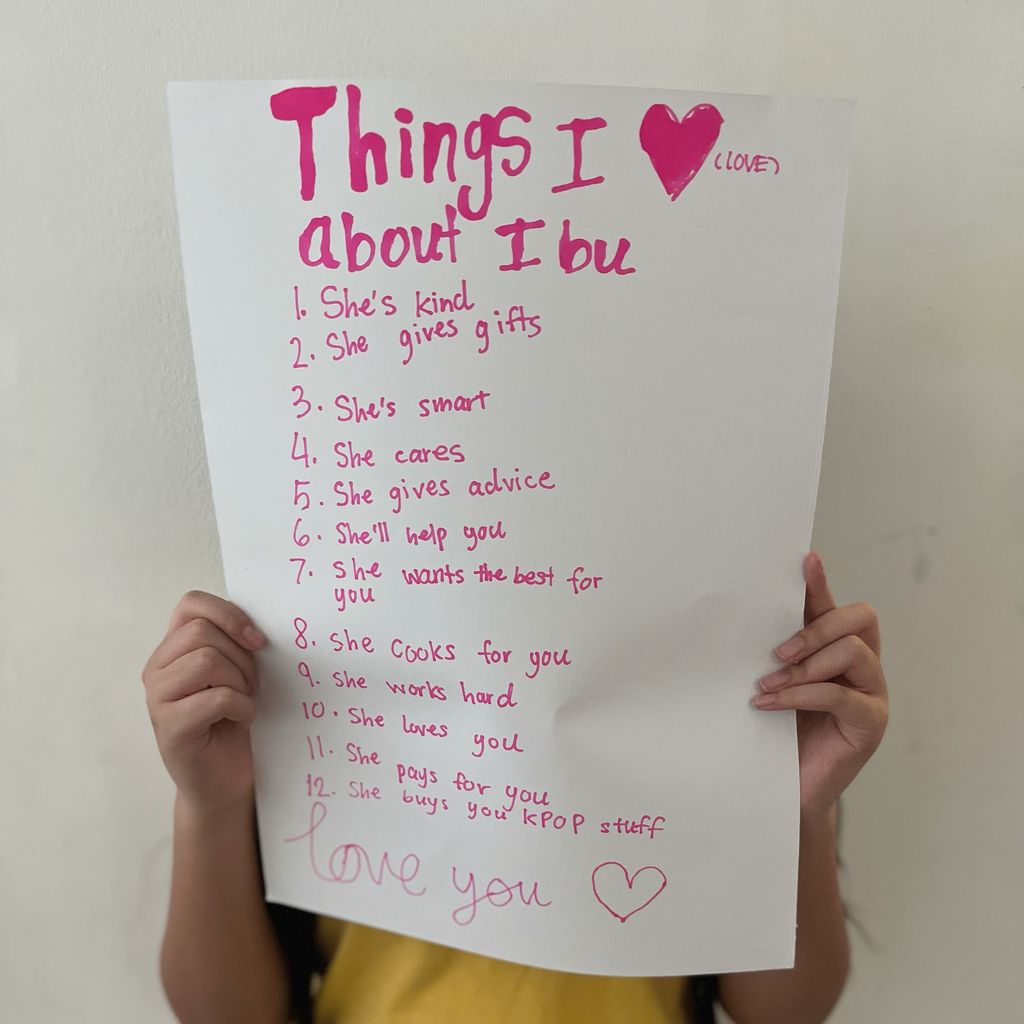 Things I ♥ (LOVE)
about Ibu
1. She's kind
2. She gives gifts
3. She's smart
4. She cares
5. She gives advice
6. She'll help you
7. She wants the best for
you
8. She cooks for you
9. She works hard
10. She loves you
11. She pays for you
12. She buys you KPOP stuff
love you ♡